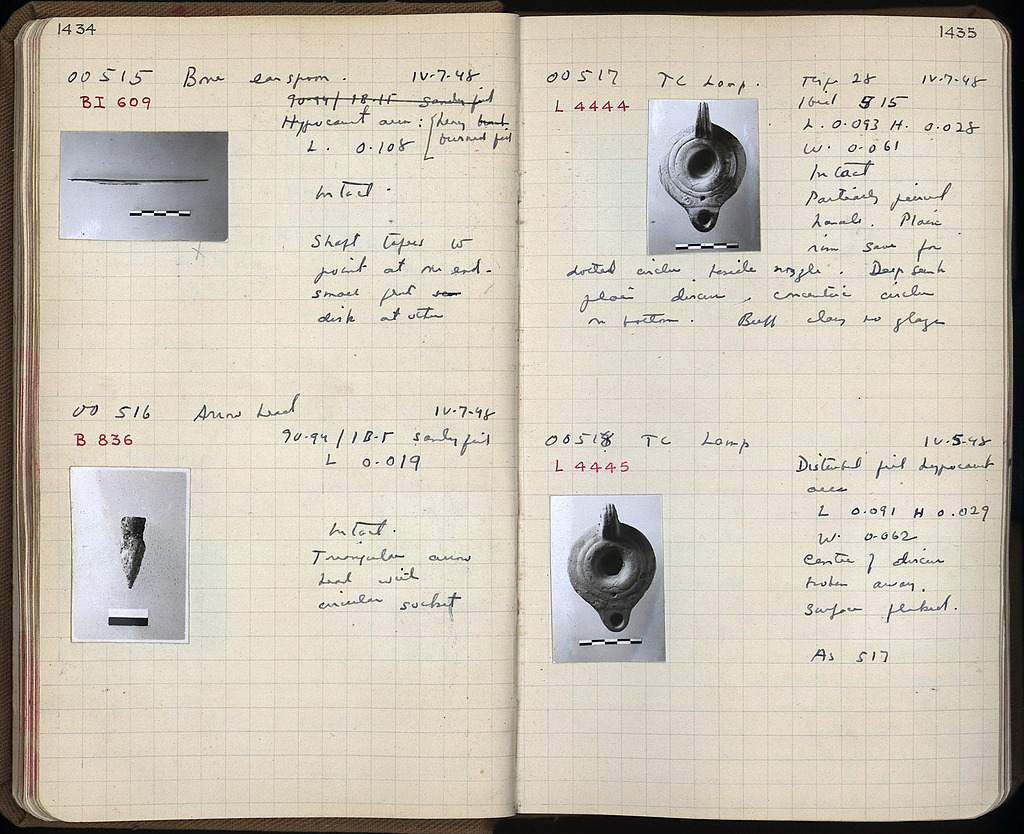 1434
OO 515 Bone ear spoon. IV-7-48
BI 609
90-94/ 18-15 sandy fill
Hypocaust area: heavy
burned fill
L. 0.108
Intact.
Shaft tapers to
point at one end.
small flat
disk at other
OO 516 Arrow head IV-7-48
B 836
90-94/18-15 sandy fill
L 0.019
Intact.
Triangular arrow
head with
circular socket
1435
OO 517 TC Lamp. Type 28 IV-7-48
L 4444
Ibid 515
L. 0.093 H. 0.028
W. 0.061
Intact
Partially pierced
handle. Plain
rim save for
dotted circles beside nozzle. Deep sunk
plain discus, concentric circles
on bottom. Buff clay no glaze
OO 518 TC Lamp IV-5-48
L 4445
Disturbed fill hypocaust
area
L 0.091 H 0.029
W. 0.062
Centre of discus
broken away.
Surface flaked.
As 517